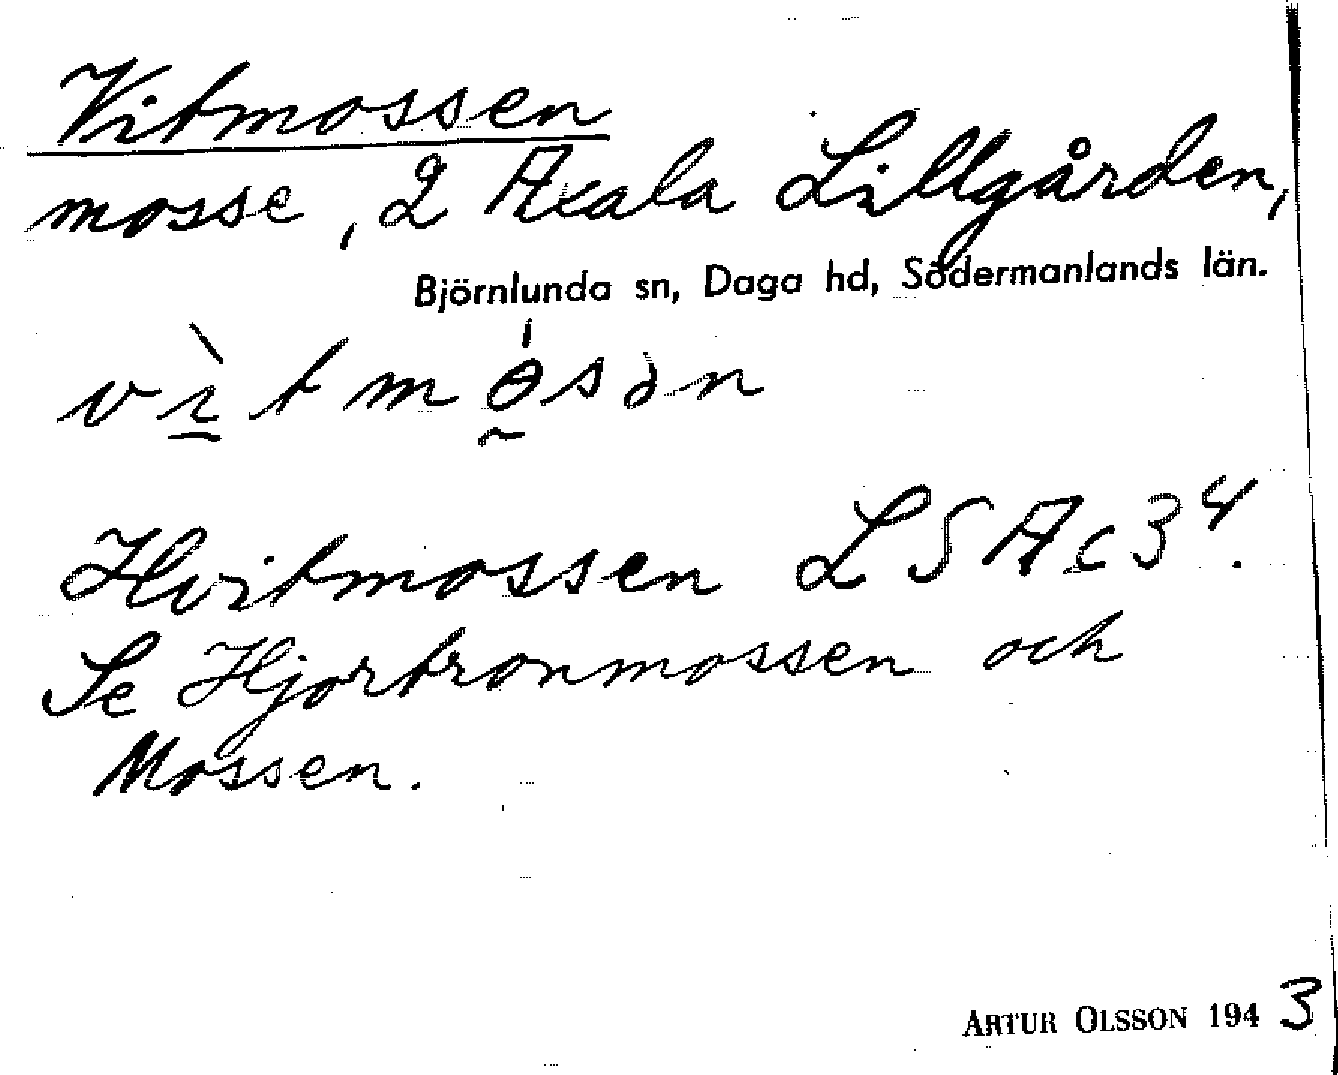 Vitmossen
mosse, 2 Axala Lillgården,
Björnlunda sn, Daga hd, Södermanlands län.
vı̱̀tmɵ̰́sən
Hvitmossen LSA c3⁴.
Se Hjortronmossen och
Mossen.
ARTUR OLSSON 1943